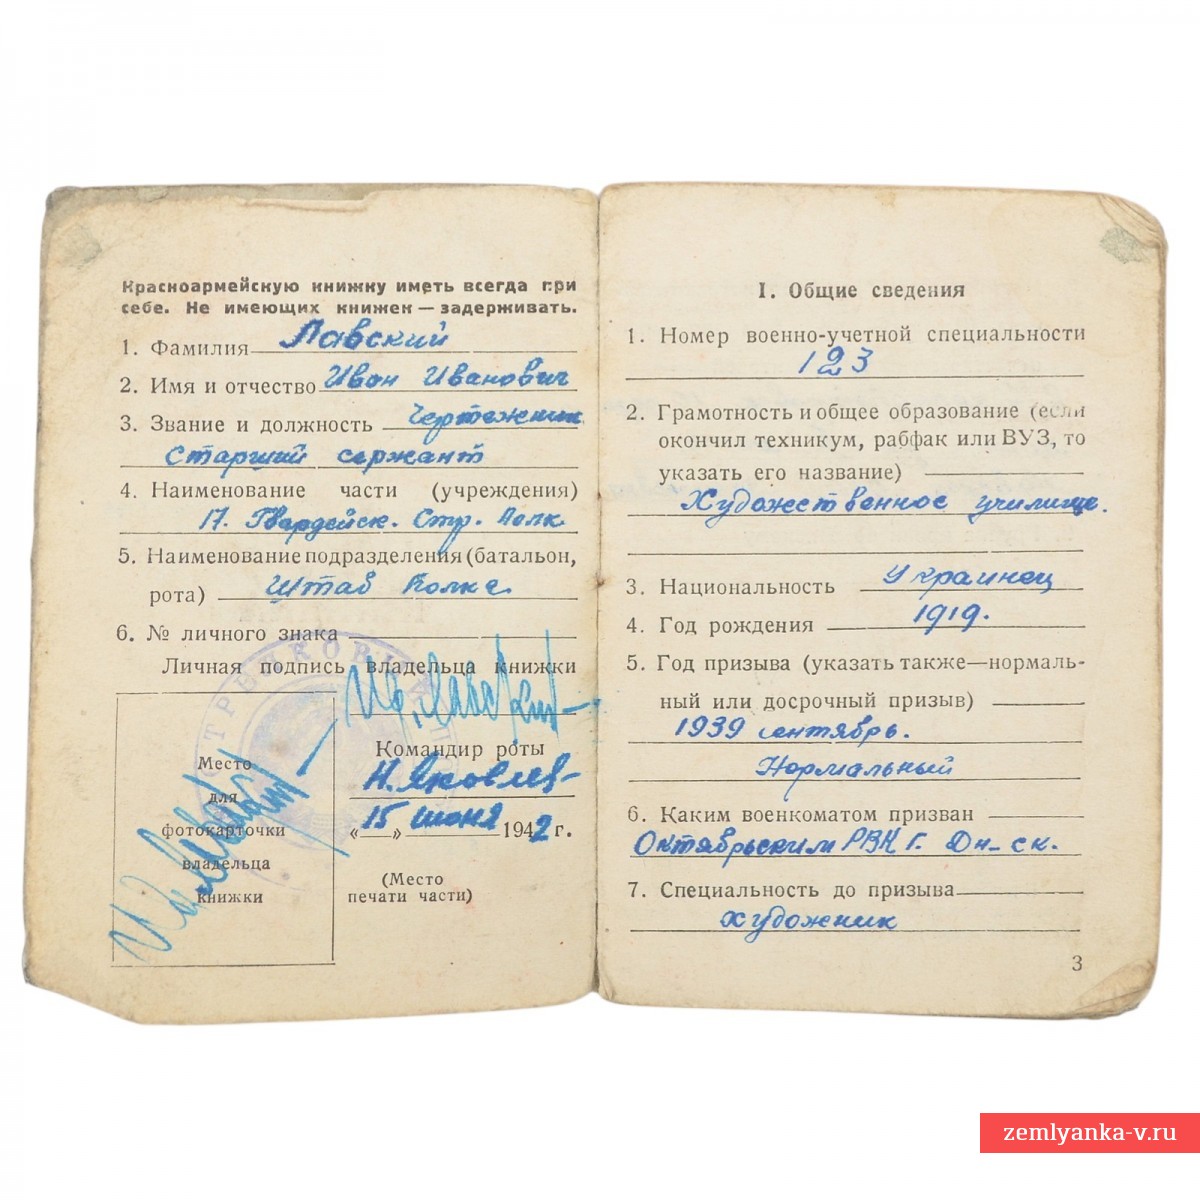 Красноармейскую книжку иметь всегда при
себе. Не имеющих книжек — задерживать.
1. Фамилия Лавский
2. Имя и отчество Иван Иванович
3. Звание и должность Чертежник
Старший сержант
4. Наименование части (учреждения)
17. Гвардейск. Стр. Полк.
5. Наименование подразделения (батальон,
рота) Штаб Полка
6. № личного знака
Личная подпись владельца книжки
Ив. Лавский
Командир роты
Н. Яковлев
«15» июня 1942 г.
(Место
печати части)
СТРЕЛКОВЫЙ
Место
для
фотокарточки
владельца
книжки
Ив. Лавский
I. Общие сведения
1. Номер военно-учетной специальности
123
2. Грамотность и общее образование (если
окончил техникум, рабфак или ВУЗ, то
указать его название)
Художественное училище.
3. Национальность Украинец
4. Год рождения 1919.
5. Год призыва (указать также—нормаль-
ный или досрочный призыв)
1939 сентябрь.
Нормальный
6. Каким военкоматом призван
Октябрьским РВК г. Дн-ск.
7. Специальность до призыва
художник
3
zemlyanka-v.ru